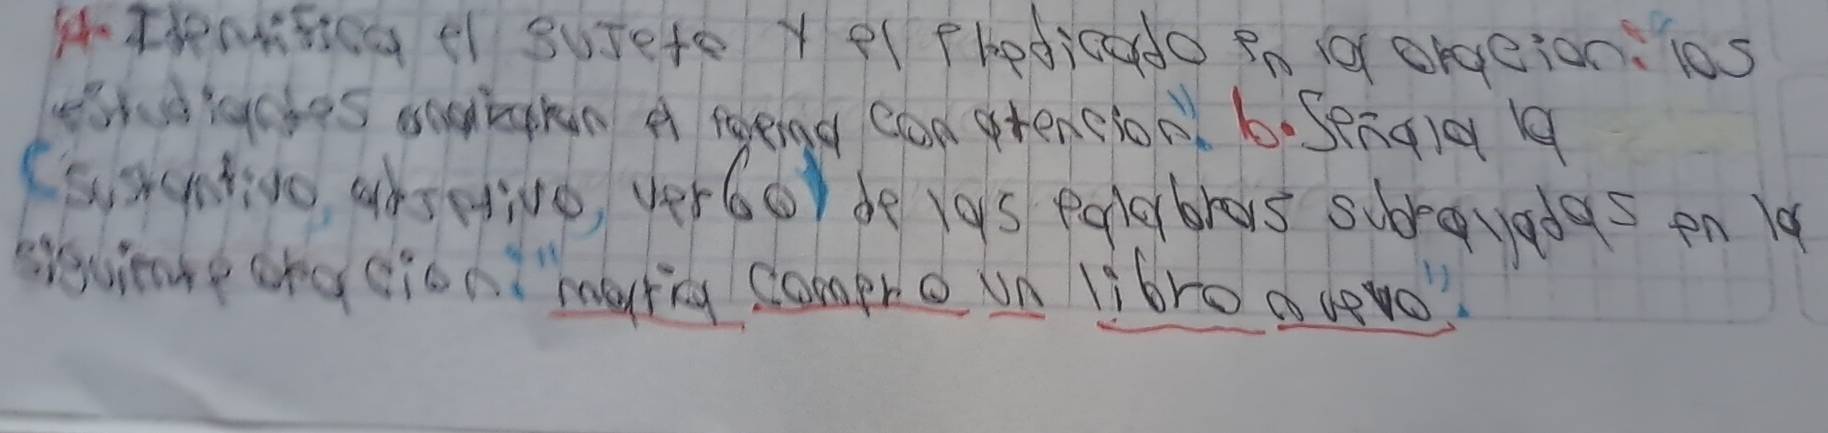 A. Identifica el sujeto y el predicado en la oracion: "los
estudiantes con atencion". b. Señala la
(sustantivo, adjetivo, verbo) de las palabras subrayadas en la
siguiente oracion: "maria compro un libro nuevo".